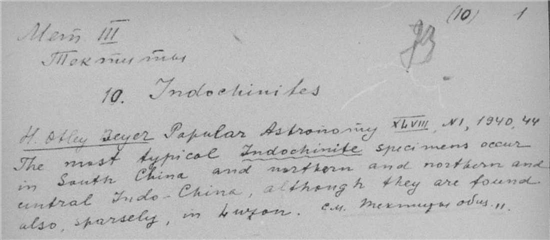 (10) 1
Мет III
Тектиты
10. Indochinites
H. Otley Beyer Popular Astronomy XLVIII, N1, 1940, 44
The most typical Indochinite specimens occur
in South China and northern and northern and
central Indo-China, although they are found
also, sparsely, in Luzon. см. Тектиты общ.,,